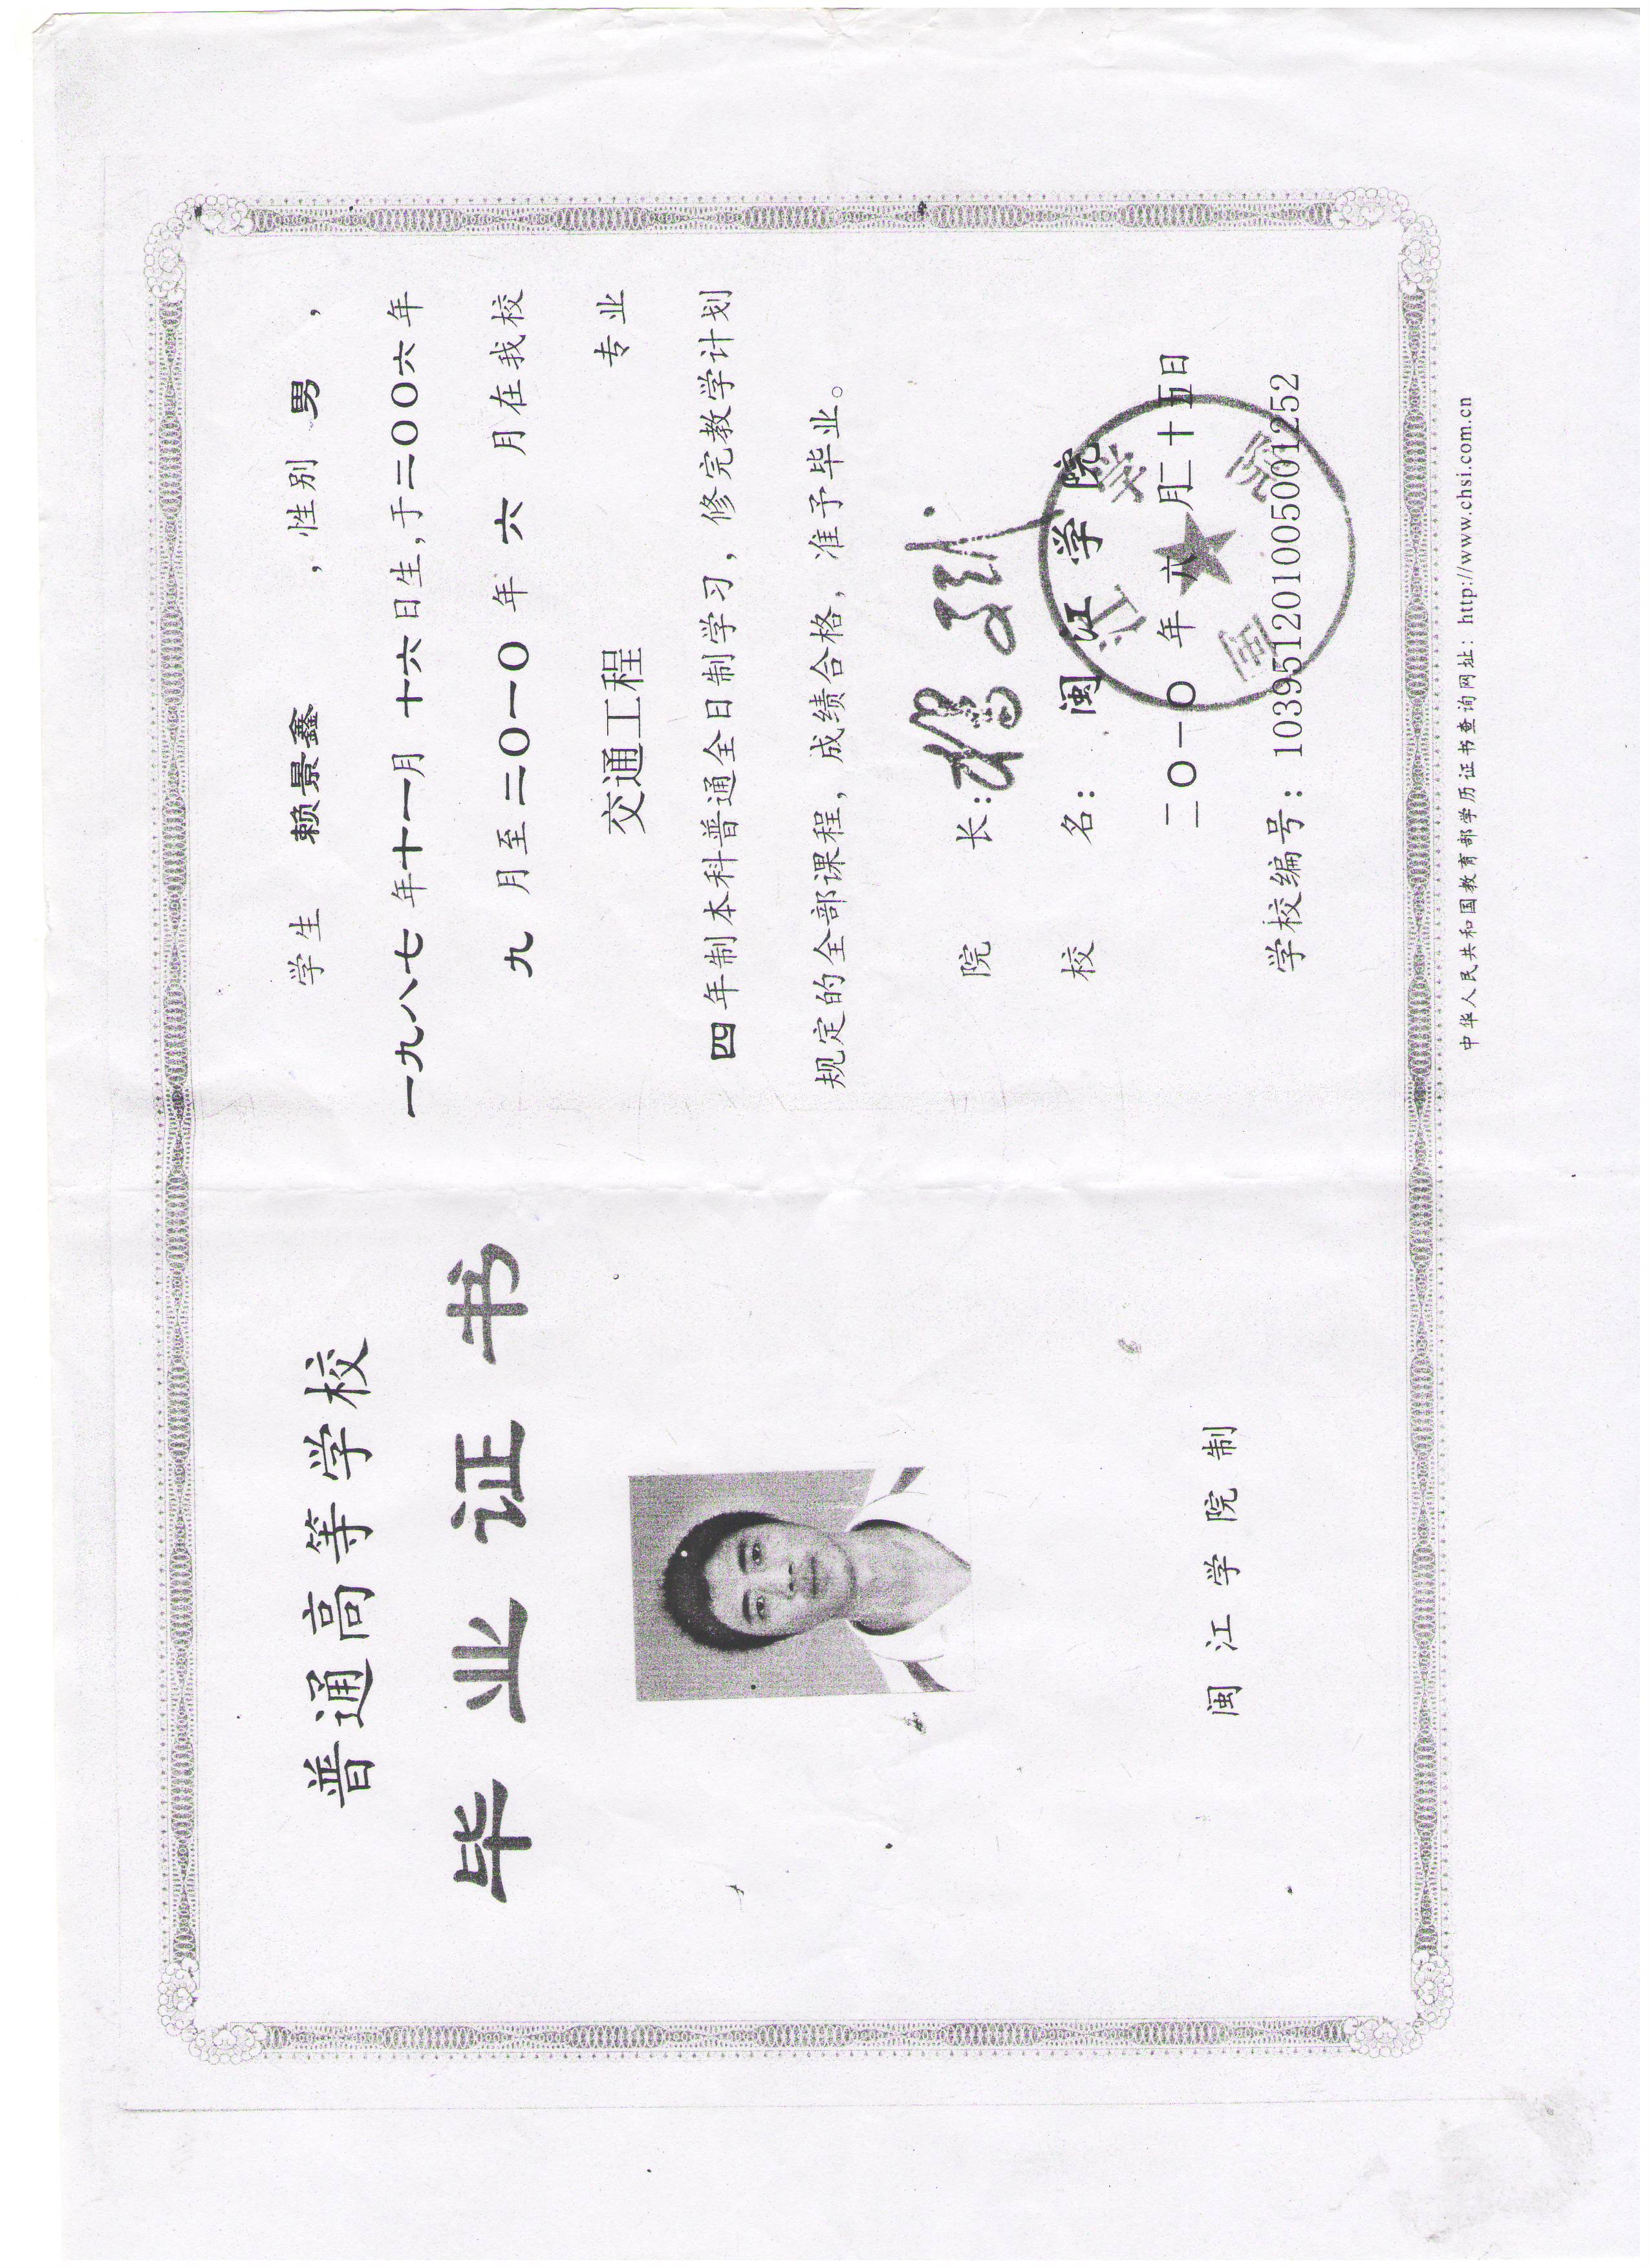 普通高等学校
毕业证书
闽江学院制
学生 赖景鑫 ，性别 男 ，
一九八七年十一月十六日生,于二〇〇六年
九月至二〇一〇年 六 月在我校
交通工程 专业
四年制本科普通全日制学习，修完教学计划
规定的全部课程，成绩合格，准予毕业。
院 长：
校 名：闽江学院
二〇一〇年六月二十五日
学校编号：103951201005001252
闽江学院
中华人民共和国教育部学历证书查询网址：http://www.chsi.com.cn